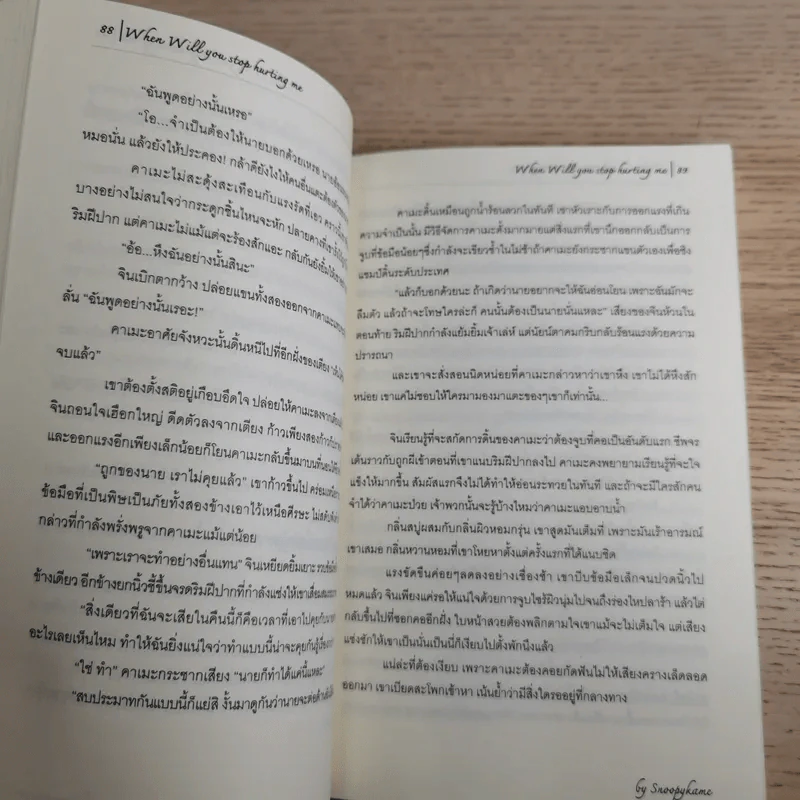 88 | When Will you stop hurting me
"ฉันพูดอย่างนั้นเหรอ"
"โอ...จำเป็นต้องให้นายบอกด้วยเหรอ
หมอนั่น แล้วยังให้ประคอง! กล้าดียังไงให้คนอื่นแตะต้อง
คาเมะไม่สะดุ้งสะเทือนกับแรงรัดที่เอว
บางอย่างไม่สนใจว่ากระดูกชิ้นไหนจะหัก ปลายคางที่
ริมฝีปาก แต่คาเมะไม่แม้แต่จะร้องสักแอะ กลับกันยังยิ้ม
"อ้อ...หึงฉันอย่างนั้นสินะ"
จินเบิกตากว้าง ปล่อยแขนทั้งสองออกจากคาเมะ
ลั่น "ฉันพูดอย่างนั้นเรอะ!"
คาเมะอาศัยจังหวะนั้นดิ้นหนีไปที่อีกฝั่งของเตียง
จบแล้ว"
เขาต้องตั้งสติอยู่เกือบอึดใจ ปล่อยให้คาเมะลงจาก
จินถอนใจเฮือกใหญ่ ดีดตัวลงจากเตียง ก้าวเพียงสองก้าว
และออกแรงอีกเพียงเล็กน้อยก็โยนคาเมะกลับขึ้นมาบนที่นอน
"ถูกของนาย เราไม่คุยแล้ว" เขาก้าวขึ้นไป คร่อม
ข้อมือที่เป็นพิษเป็นภัยทั้งสองข้างเอาไว้เหนือศีรษะ ไม่
กล่าวที่กำลังพรั่งพรูจากคาเมะแม้แต่น้อย
"เพราะเราจะทำอย่างอื่นแทน" จินเหยียดยิ้มเยาะ
ข้างเดียว อีกข้างยกนิ้วชี้ขึ้นจรดริมฝีปากที่กำลังแช่งให้เขา
"สิ่งเดียวที่ฉันจะเสียในคืนนี้ก็คือเวลาที่เอาไปคุยกับนาย
อะไรเลยเห็นไหม ทำให้ฉันยิ่งแน่ใจว่าทำแบบนี้น่าจะคุยกันรู้เรื่อง
"ใช่ ทำ" คาเมะกระชากเสียง "นายก็ทำได้แค่นี้แหละ"
"สบประมาทกันแบบนี้ก็แย่สิ งั้นมาดูกันว่านายจะต่อต้าน
When Will you stop hurting me | 89
คาเมะดิ้นเหมือนถูกน้ำร้อนลวกในทันที เขาหัวเราะกับการออกแรงที่เกิน
ความจำเป็นนั้น มีวิธีจัดการคาเมะตั้งมากมายแต่สิ่งแรกที่เขานึกออกกลับเป็นการ
จูบที่ข้อมือน้อยๆซึ่งกำลังจะเขียวช้ำในไม่ช้าถ้าคาเมะยังกระชากแขนตัวเองเพื่อชิง
แชมป์ดิ้นระดับประเทศ
"แล้วก็บอกด้วยนะ ถ้าเกิดว่านายอยากจะให้ฉันอ่อนโยน เพราะฉันมักจะ
ลืมตัว แล้วถ้าจะโทษใครล่ะก็ คนนั้นต้องเป็นนายนั่นแหละ" เสียงของจินห้วนใน
ตอนท้าย ริมฝีปากกำลังแย้มยิ้มเจ้าเล่ห์ แต่นัยน์ตาคมกริบกลับร้อนแรงด้วยความ
ปรารถนา
และเขาจะสั่งสอนนิดหน่อยที่คาเมะกล่าวหาว่าเขาหึง เขาไม่ได้หึงสัก
หน่อย เขาแค่ไม่ชอบให้ใครมามองมาแตะของๆเขาก็เท่านั้น...
จินเรียนรู้ที่จะสกัดการดิ้นของคาเมะว่าต้องจูบที่คอเป็นอันดับแรก ชีพจร
เต้นราวกับถูกผีเข้าตอนที่เขาแนบริมฝีปากลงไป คาเมะคงพยายามเรียนรู้ที่จะใจ
แข็งให้มากขึ้น สัมผัสแรกจึงไม่ได้ทำให้อ่อนระทวยในทันที และถ้ามีใครสักคน
จำได้ว่าคาเมะป่วย เจ้าพวกนั้นจะรู้บ้างไหมว่าคาเมะแอบอาบน้ำ
กลิ่นสบู่ผสมกับกลิ่นผิวหอมกรุ่น เขาสูดมันเต็มที่ เพราะมันเร้าอารมณ์
เขาเสมอ กลิ่นหวานหอมที่เขาโหยหาตั้งแต่ครั้งแรกที่ได้แนบชิด
แรงขัดขืนค่อยๆลดลงอย่างเชื่องช้า เขาบีบข้อมือเล็กจนปวดนิ้วไป
หมดแล้ว จินเพียงแค่รอให้แน่ใจด้วยการจูบไซร้ผิวนุ่มไปจนถึงร่องไหปลาร้า แล้วไต่
กลับขึ้นไปที่ซอกคออีกฝั่ง ใบหน้าสวยต้องพลิกตามใจเขาแม้จะไม่เต็มใจ แต่เสียง
แช่งชักให้เขาเป็นนั่นเป็นนี่ก็เงียบไปตั้งพักนึงแล้ว
แน่ล่ะที่ต้องเงียบ เพราะคาเมะต้องคอยกัดฟันไม่ให้เสียงครางเล็ดลอด
ออกมา เขาเบียดสะโพกเข้าหา เน้นย้ำว่ามีสิ่งใดรออยู่ที่กลางทาง
by Snoopykame